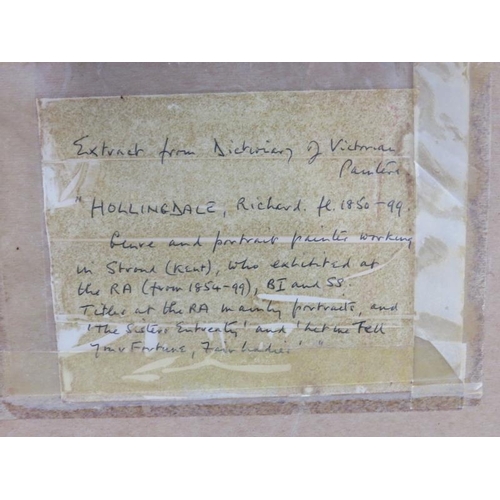 Extract from Dictionary of Victorian
Painters
"HOLLINGDALE, Richard. fl. 1850-99.
Genre and portrait painter working
in Strood (Kent), who exhibited at
the RA (from 1854-99), BI and SS.
Titles at the RA mainly portraits, and
'The Sisters Entreaty' and 'Let me Tell
Your Fortune, Fair Ladies' "